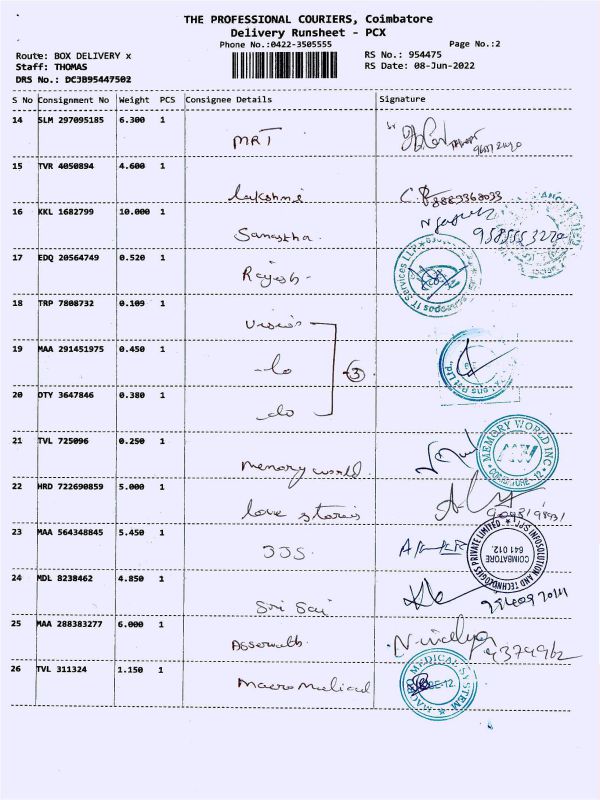 THE PROFESSIONAL COURIERS, Coimbatore
Delivery Runsheet - PCX
Phone No.:0422-3505555
Page No.:2
Route: BOX DELIVERY x
RS No.: 954475
Staff: THOMAS
RS Date: 08-Jun-2022
DRS No.: DCJB95447502
S No Consignment No Weight PCS Consignee Details Signature
14 SLM 297095185 6.300 1
MRT
15 TVR 4050894 4.600 1
Lakshmi
16 KKL 1682799 10.000 1
17 EDQ 20564749 0.520 1
Rajesh
18 TRP 7808732 0.109 1
Vision
19 MAA 291451975 0.450 1
do 3
20 DTY 3647846 0.380 1
do
21 TVL 725096 0.250 1
memory world.
MEMORY WORLD INC
COIMBATORE - 12
22 HRD 722690859 5.000 1
love stories
23 MAA 564348845 5.450 1
JJS.
IPS INFOSOLUTION AND TECHNOLOGIES PRIVATE LIMITED
COIMBATORE
641 012.
24 MDL 8238462 4.850 1
Sri Sai
25 MAA 288383277 6.000 1
26 TVL 311324 1.150 1
macro medical
MEDICAL SYSTEM